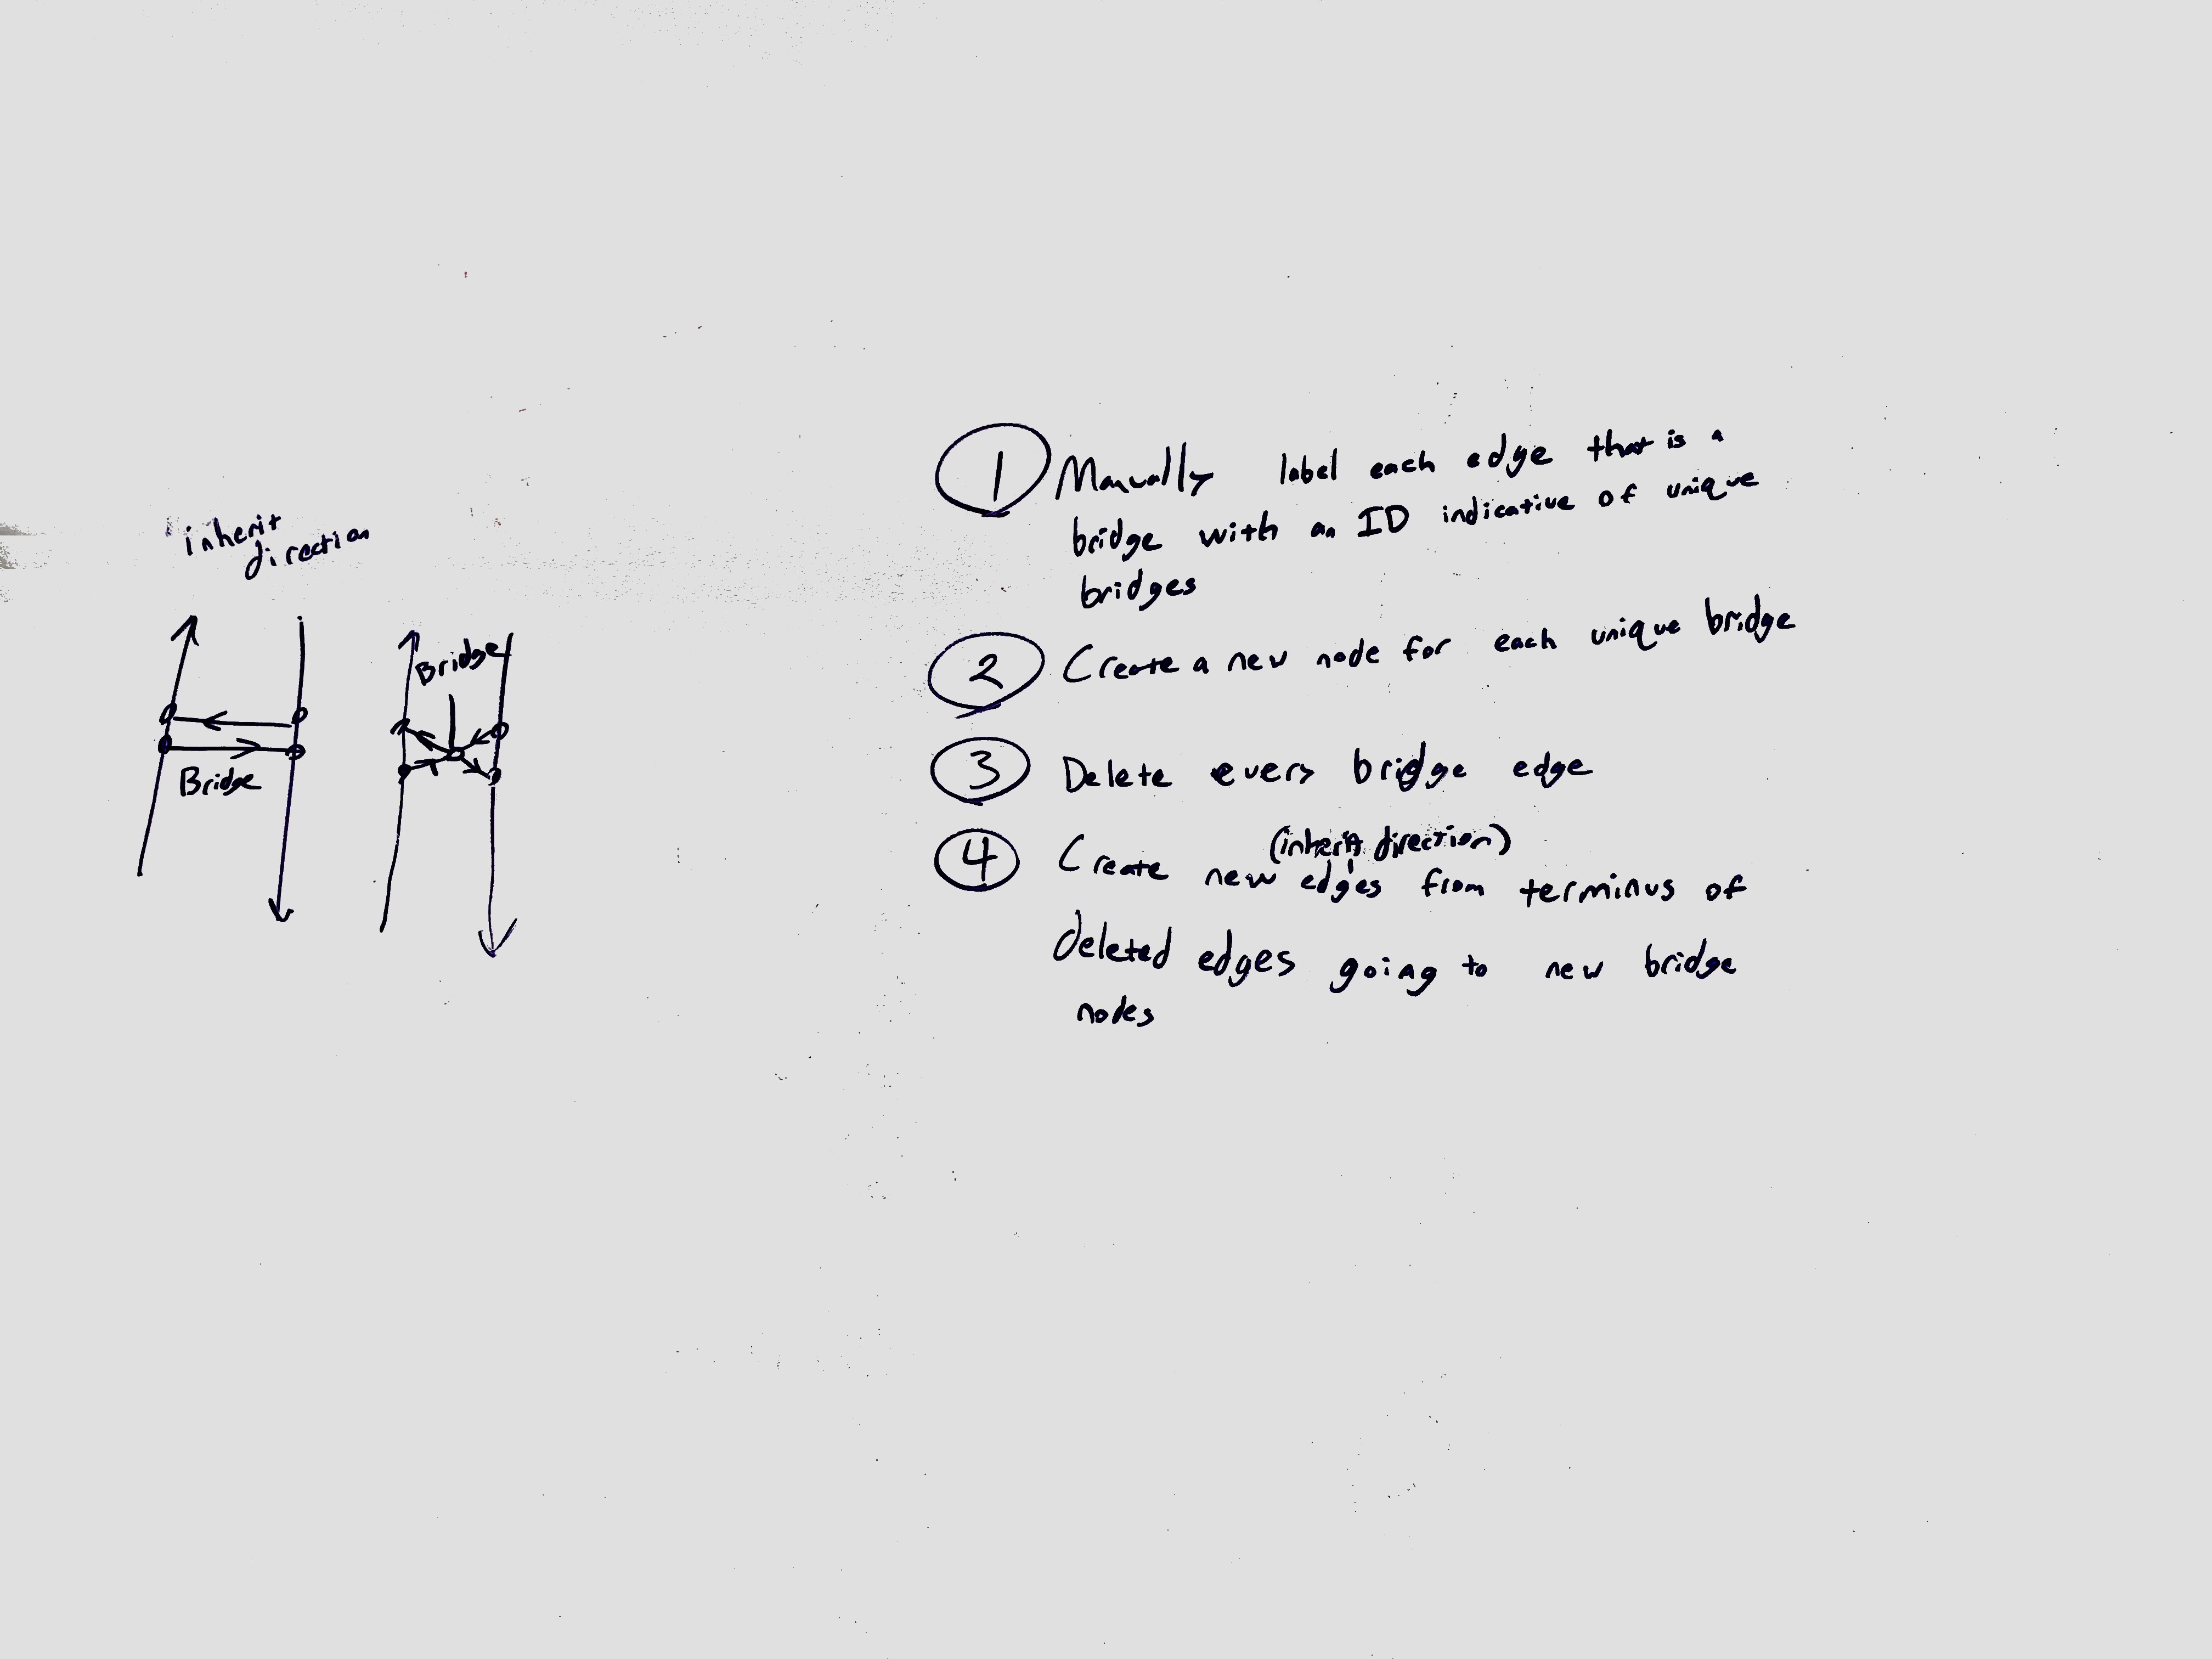 inherit
direction
Bridge
Bridge
1 Manually label each edge that is a
bridge with an ID indicative of unique
bridges
2 Create a new node for each unique bridge
3 Delete every bridge edge
4 (inherit direction)
Create new edges from terminus of
deleted edges going to new bridge
nodes